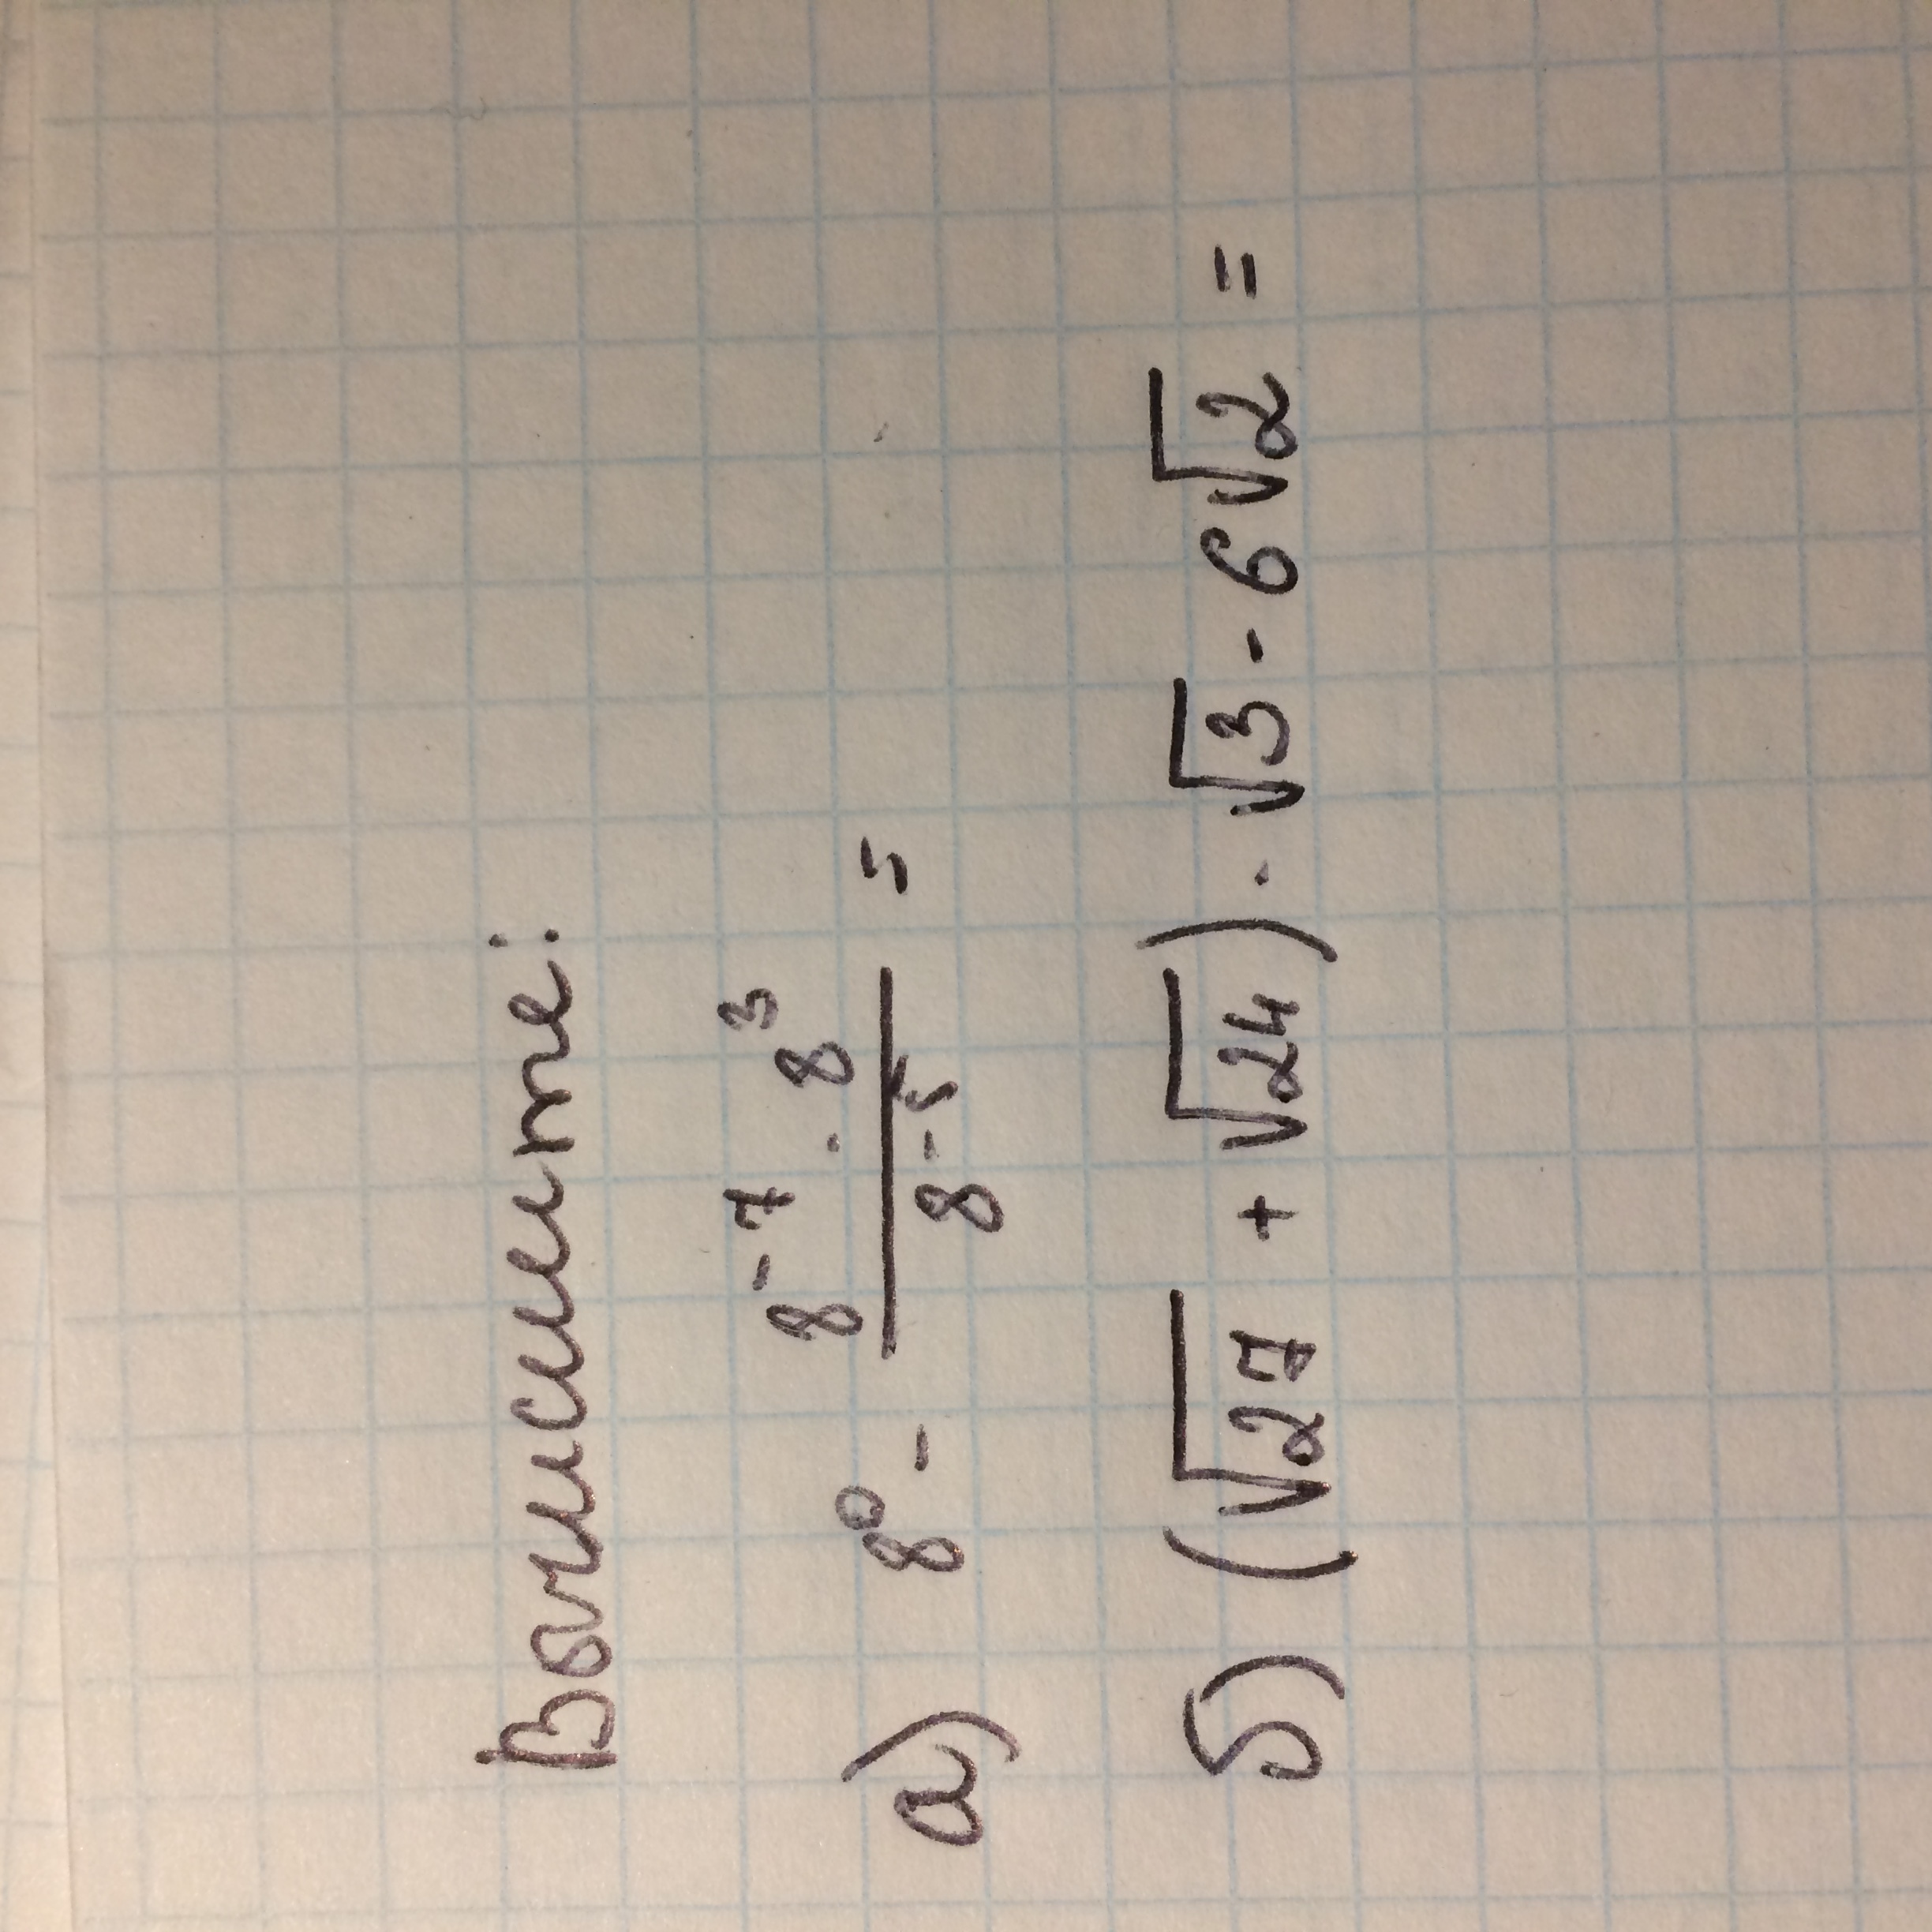 Вычислите:
а) 8⁰ - (8⁻⁷ · 8³)/(8⁻⁵) =
б) (√27 + √24) · √3 - 6√2 =